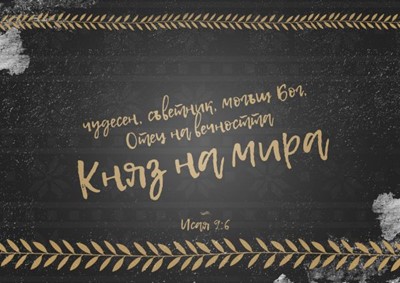 чудесен, съветник, могъщ Бог,
Отец на вечността
Княз на мира
Исая 9:6